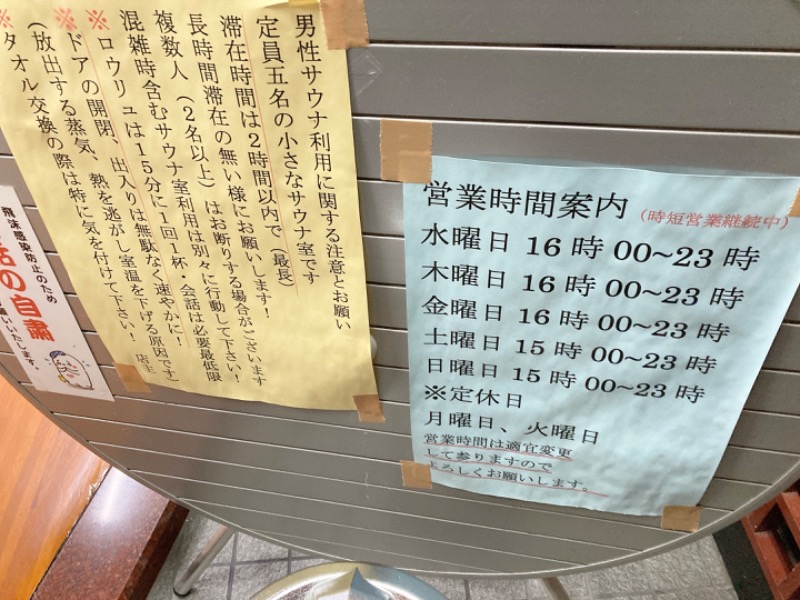 男性サウナ利用に関する注意とお願い
定員五名の小さなサウナ室です
滞在時間は2時間以内で(最長)
長時間滞在の無い様にお願いします!
複数人(2名以上)はお断りする場合がございます
混雑時含むサウナ室利用は別々に行動して下さい!
※ロウリュは15分に1回1杯・会話は必要最低限
※ドアの開閉、出入りは無駄なく速やかに!
(放出する蒸気、熱を逃がし室温を下げる原因です)
※タオル交換の際は特に気を付けて下さい! 店主
営業時間案内(時短営業継続中)
水曜日 16時00~23時
木曜日 16時00~23時
金曜日 16時00~23時
土曜日 15時00~23時
日曜日 15時00~23時
※定休日
月曜日、火曜日
営業時間は適宜変更
して参りますので
よろしくお願いします。
飛沫感染防止のため
話の自粛
願いいたします。